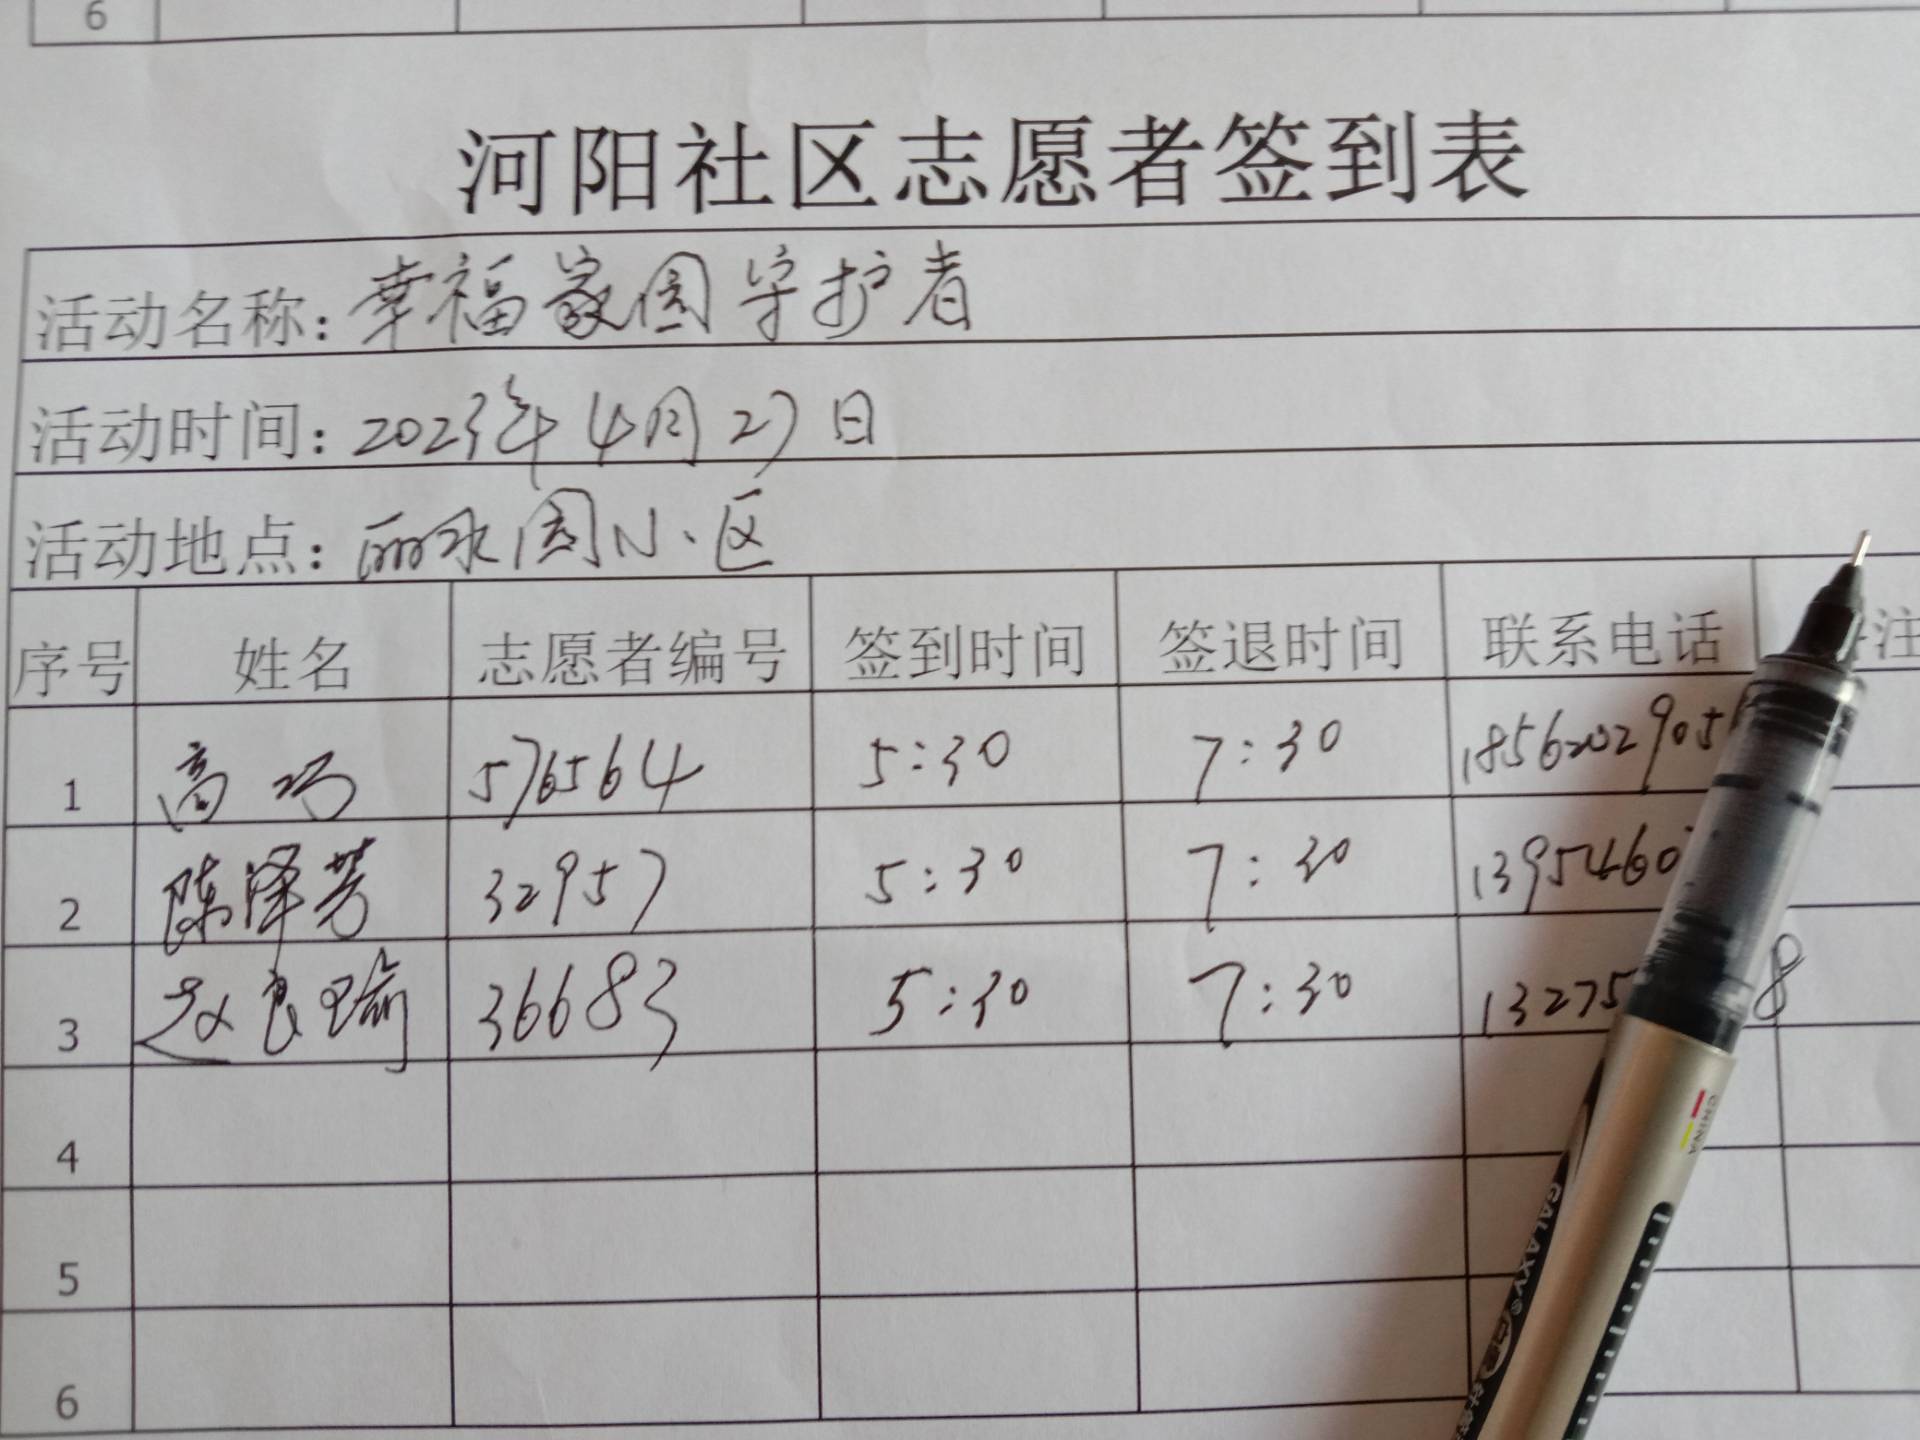 6
河阳社区志愿者签到表
活动名称：幸福家园守护者
活动时间：2023年4月27日
活动地点：丽水园小区
序号 姓名 志愿者编号 签到时间 签退时间 联系电话 注
1 高巧 576564 5:30 7:30
2 陈泽芳 32957 5:30 7:30 1395460
3 赵良瑜 36683 5:30 7:30 13275 8
4
5
6
CHINA
GALAXY®